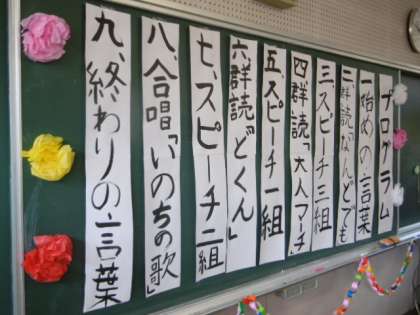 プログラム
一、始めの言葉
二、群読「なんどでも
三、スピーチ三組
四、群読「大人マーチ」
五、スピーチ一組
六、群読「どくん」
七、スピーチ二組
八、合唱「いのちの歌」
九、終わりの言葉